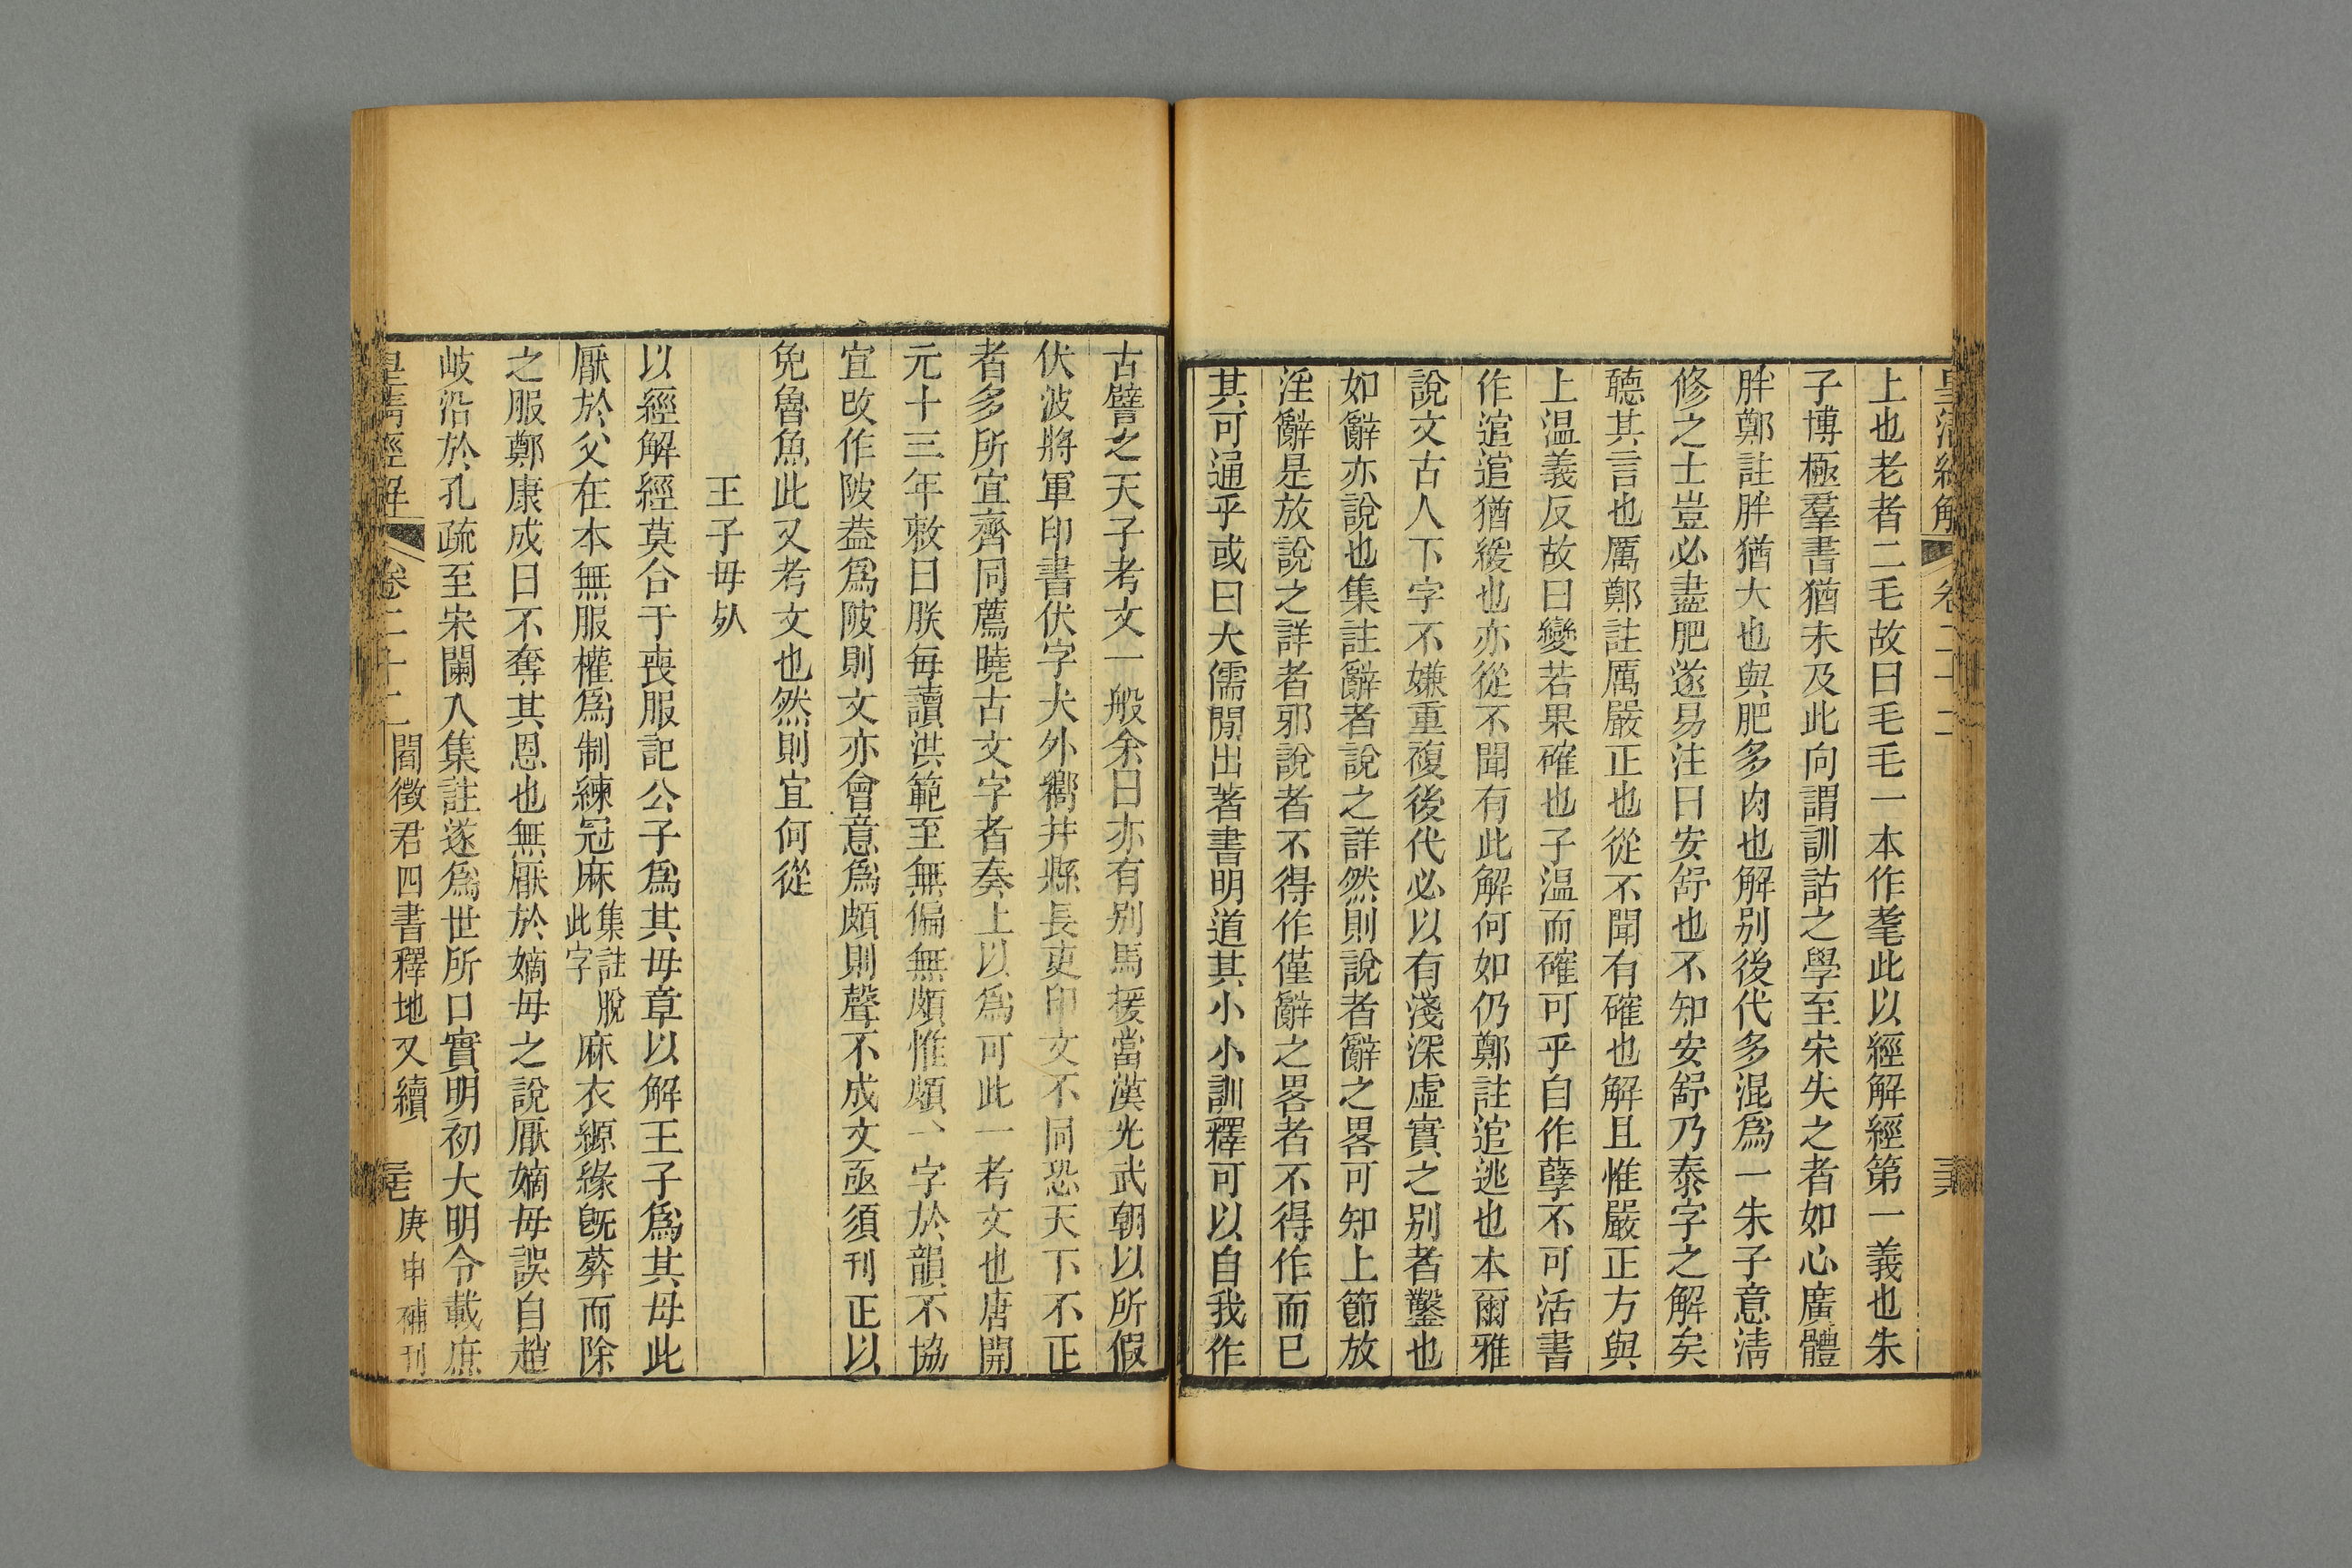 皇清經解 卷二十二 三六
上也老者二毛故曰毛毛一本作耄此以經解經第一義也朱
子博極羣書猶未及此向謂訓詁之學至宋失之者如心廣體
胖鄭註胖猶大也與肥多肉也解别後代多混爲一朱子意淸
修之士豈必盡肥遂易注曰安舒也不知安舒乃泰字之解矣
聽其言也厲鄭註厲嚴正也從不聞有確也解且惟嚴正方與
上温義反故曰變若果確也子温而確可乎自作孽不可活書
作逭逭猶緩也亦從不聞有此解何如仍鄭註逭逃也本爾雅
說文古人下字不嫌重複後代必以有淺深虛實之别者鑿也
如辭亦說也集註辭者說之詳然則說者辭之畧可知上節放
淫辭是放說之詳者邪說者不得作僅辭之畧者不得作而已
其可通乎或曰大儒閒出著書明道其小小訓釋可以自我作
古譬之天子考文一般余曰亦有别馬援當漢光武朝以所假
伏波將軍印書伏字犬外嚮并縣長吏印文不同恐天下不正
者多所宜齊同薦曉古文字者奏上以爲可此一考文也唐開
元十三年敕曰朕每讀洪範至無偏無頗惟頗一字於韻不協
宜改作陂葢爲陂則文亦會意爲頗則聲不成文亟須刊正以
免魯魚此又考文也然則宜何從
王子母夘
以經解經莫合于喪服記公子爲其母章以解王子爲其母此
厭於父在本無服權爲制練冠麻集註脫此字麻衣縓緣旣葬而除
之服鄭康成曰不奪其恩也無厭於嫡母之說厭嫡母誤自趙
岐沿於孔疏至宋闌入集註遂爲世所口實明初大明令載庶
皇淸經解 卷二十二 閻徵君四書釋地又續 三七 庚申補刊